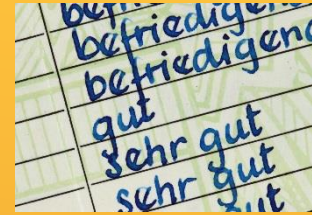 befriedigend
befriedigend
gut
sehr gut
sehr gut